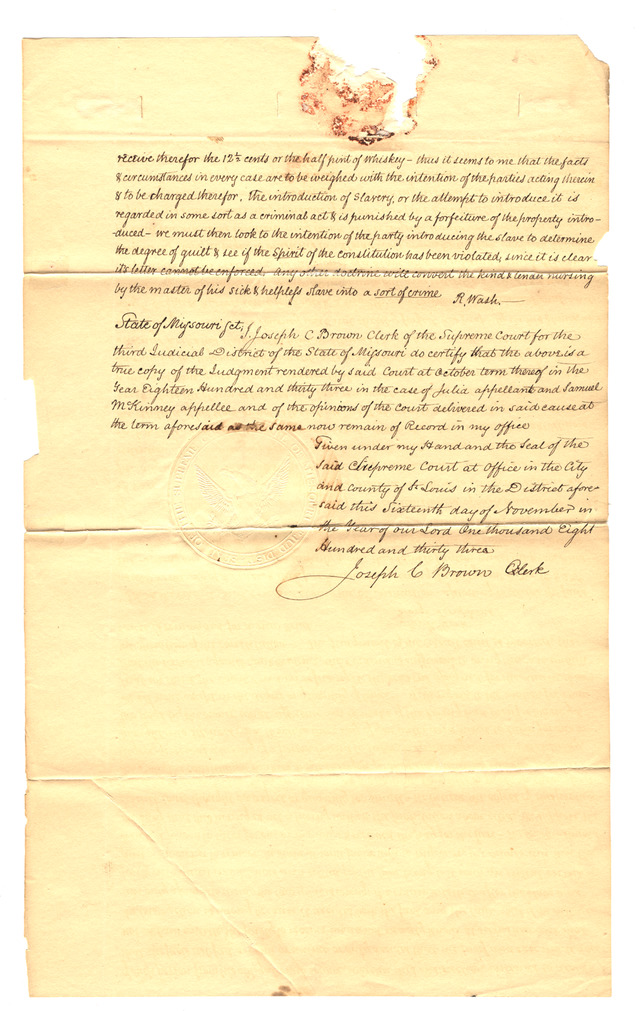 receive therefor the 12½ cents or the half pint of whiskey – thus it seems to me that the facts
& circumstances in every case are to be weighed with the intention of the parties acting therein
& to be charged therefor. the introduction of Slavery, or the attempt to introduce it is
regarded in some sort as a criminal act & is punished by a forfeiture of the property intro-
duced – we must then look to the intention of the party introducing the slave to determine
the degree of guilt & see if the Spirit of the constitution has been violated, since it is clear
its letter cannot be enforced. Any other doctrine will convert the kind & tender nursing
by the master of his sick & helpless slave into a sort of crime R. Wash. —
State of Missouri Sct. I, Joseph C Brown Clerk of the Supreme Court for the
third Judicial District of the State of Missouri do certify that the above is a
true copy of the Judgment rendered by said Court at October term thereof in the
Year Eighteen Hundred and thirty three in the case of Julia appellant and Samuel
McKinney appellee and of the opinions of the court delivered in said cause at
the term aforesaid as the same now remain of Record in my office
Given under my Hand and the Seal of the
said Supreme Court at office in the City
and county of St Louis in the District afore-
said this Sixteenth day of November in
the Year of our Lord One thousand Eight
Hundred and thirty three
Joseph C Brown Clerk